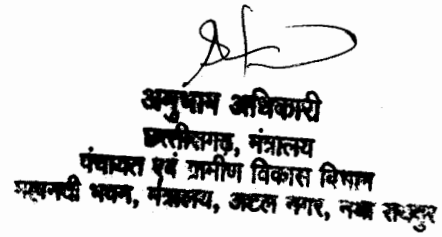 अनुभाग अधिकारी
छत्तीसगढ़, मंत्रालय
पंचायत एवं ग्रामीण विकास विभाग
महानदी भवन, मंत्रालय, अटल नगर, नवा रायपुर